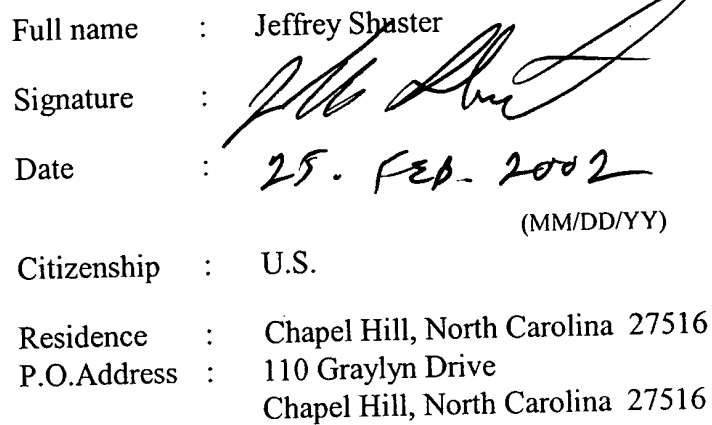 Full name : Jeffrey Shuster
Signature :
Date : 25. FEB. 2002
(MM/DD/YY)
Citizenship : U.S.
Residence : Chapel Hill, North Carolina 27516
P.O.Address : 110 Graylyn Drive
Chapel Hill, North Carolina 27516